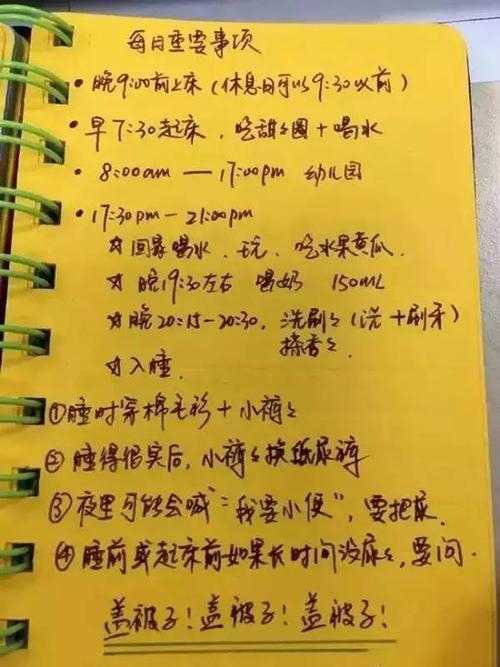 每日重要事项
• 晚9:00前上床（休息日可以9:30以前）
• 早7:30起床，吃甜甜圈+喝水
• 8:00am — 17:00pm 幼儿园
• 17:30pm — 21:00pm
☆ 回家喝水、玩、吃水果黄瓜.
☆ 晚19:30左右 喝奶 150ML
☆ 晚20:15-20:30，洗刷刷（洗+刷牙）
搽香香.
☆ 入睡.
①睡时穿棉毛衫+小裤裤
②睡得很实后，小裤裤换纸尿裤
③夜里可能会喊“我要小便”，要把尿.
④睡前或起床前如果长时间没尿尿，要问.
盖被子！盖被子！盖被子！